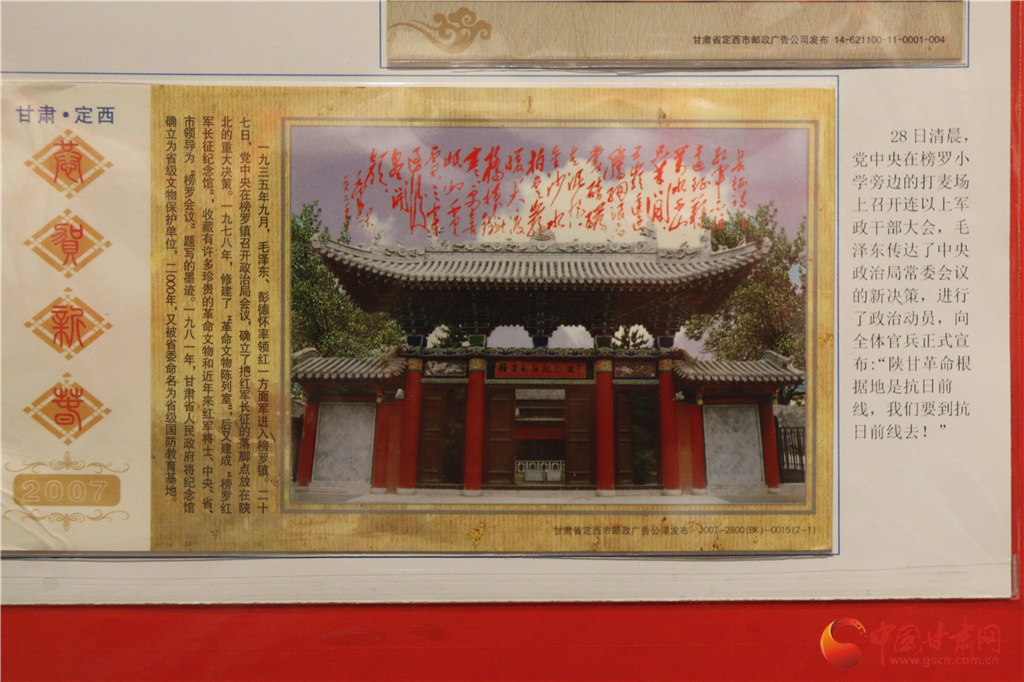 甘肃省定西市邮政广告公司发布 14-621100-11-0001-004
甘肃·定西
恭
贺
新
春
2007
一九三五年九月，毛泽东、彭德怀率领红一方面军进入榜罗镇。二十
七日，党中央在榜罗镇召开政治局会议，确立了把红军长征的落脚点放在陕
北的重大决策。一九七八年，修建了“革命文物陈列室”，后又建成“榜罗红
军长征纪念馆”，收藏有许多珍贵的革命文物和近年来红军将士、中央、省、
市领导为“榜罗会议”题写的墨迹。一九八一年，甘肃省人民政府将纪念馆
确立为省级文物保护单位，二000年，又被省委命名为省级国防教育基地。
甘肃省定西市邮政广告公司发布 2007-2800(BK)-0015(2-1)
28日清晨，
党中央在榜罗小
学旁边的打麦场
上召开连以上军
政干部大会，毛
泽东传达了中央
政治局常委会议
的新决策，进行
了政治动员，向
全体官兵正式宣
布：“陕甘革命根
据地是抗日前
线，我们要到抗
日前线去！”
中国甘肃网
www.gscn.com.cn